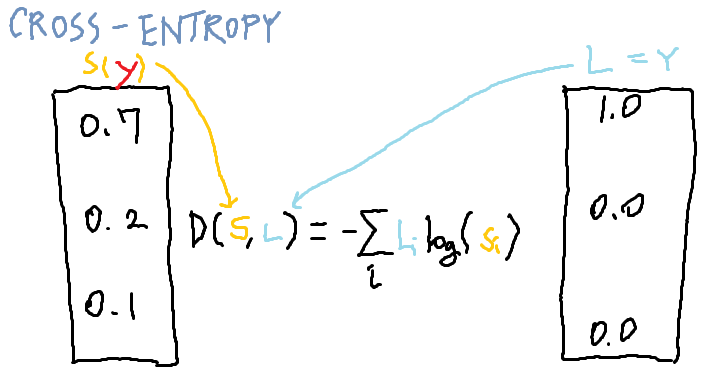 CROSS-ENTROPY
S(y)
L = Y
0.7
0.2
0.1
D(S, L) = -∑ᵢ Lᵢ log(Sᵢ)
1.0
0.0
0.0